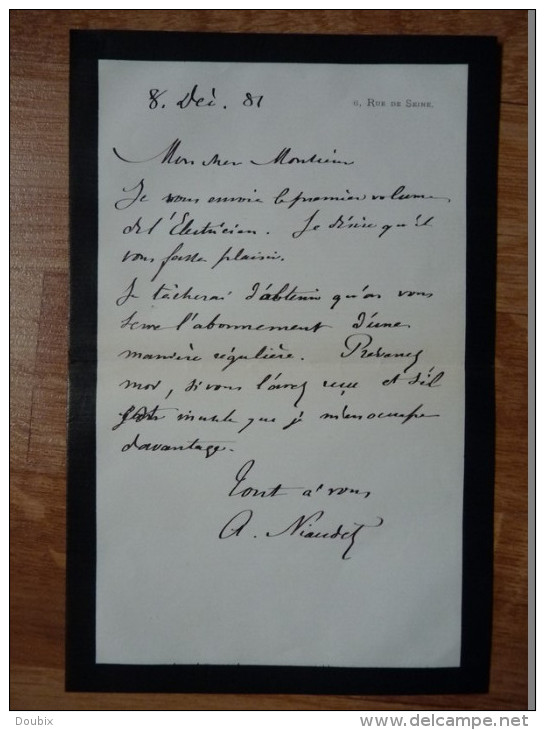 8. Déc. 81
6, RUE DE SEINE.
Mon cher Monsieur
Je vous envoie le premier volume
de l'Électricien. Je désire qu'il
vous fasse plaisir.
Je tâcherai d'obtenir qu'on vous
serve l'abonnement d'une
manière régulière. Prévenez
moi, si vous l'avez reçu et s'il
est inutile que je m'en occupe
davantage.
Tout à vous
A. Niaudet
Doubix
www.delcampe.net